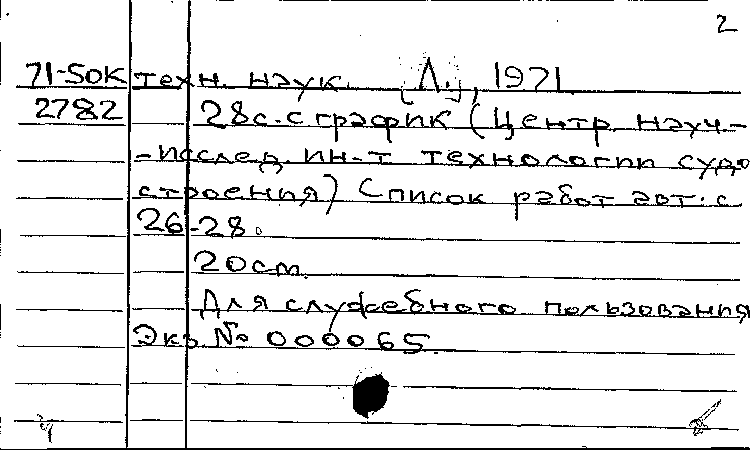 2
71-50к техн. наук. [Л.], 1971
2782 28с. с график (Центр. науч.-
-исслед. ин-т технологии судо
строения) Список работ авт: с
26-28.
20см.
Для служебного пользования
Экз № 000065